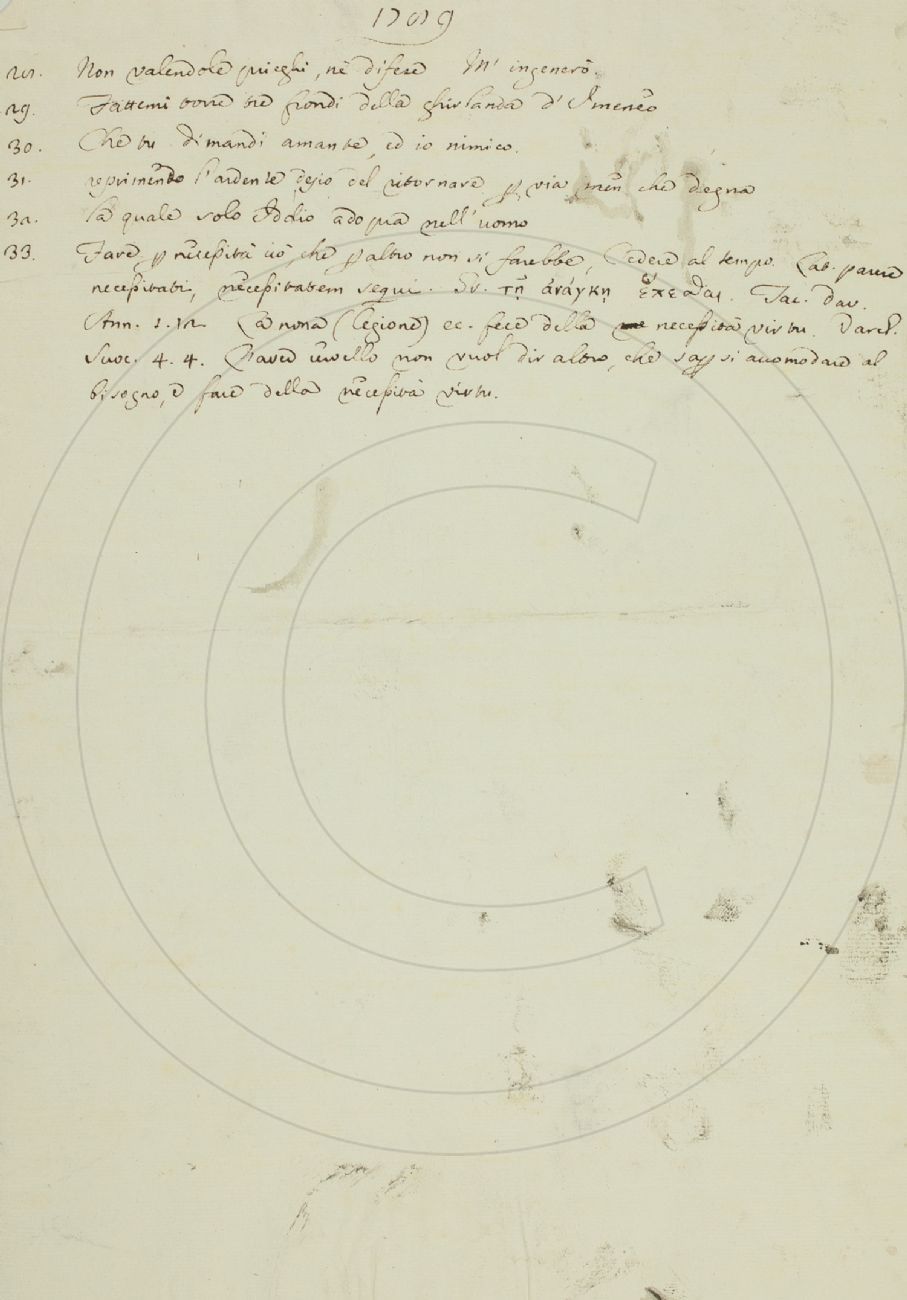 1789
28. Non valendole prieghi, nè difese M' ingenerò.
29. Fattemi torre tre frondi della ghirlanda d' Imeneo
30. Che tu dimandi amante, ed io nimico.
31. reprimendo l'ardente desio del ritornare p via men che degna
32. la quale solo Iddio adopra nell' uomo
33. Fare p necessità ciò, che p altro non si farebbe, Cedere al tempo. Lat. parere
necessitati, necessitatem sequi. Gr. τῇ ἀνάγκῃ ἕπεσθαι. Tac. Dav.
Ann. 1. 12. La nona (legione) ec. fece della necessità virtu. Varch.
Suoc. 4. 4. L'aver cervello non vuol dir altro, che sapsi accomodare al
bisogno, e fare della necessità virtu.